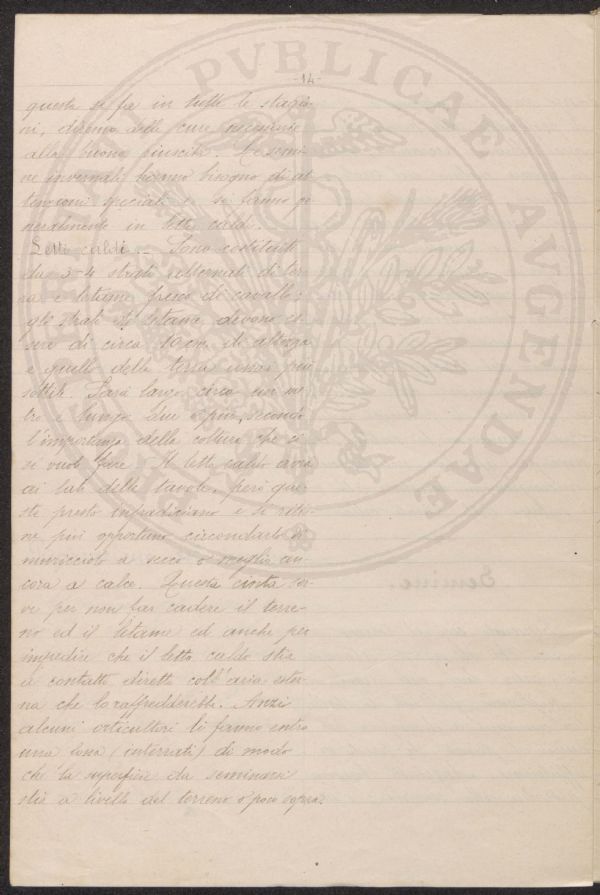 -14-
questa si fa in tutte le stagio-
ni, diremo delle cure necessarie
alla buona riuscita. Le semi-
ne invernali hanno bisogno di at
tenzioni speciali e si fanno ge
neralmente in letti caldi.
Letti caldi. - Sono costituiti
da 3-4 strati alternati di ter
ra e letame fresco di cavallo;
gli strati di letame devono es
sere di circa 10 cm. di altezza
e quelli della terra assai più
sottili. Sarà largo circa un me
tro e lungo due o più, secondo
l'importanza della coltura che ci
si vuole fare. Il letto caldo avrà
ai lati delle tavole, però que-
ste presto infradiciano e si ritie-
ne più opportuno circondarlo di
muricciolo a secco o meglio an-
cora a calce. Questa cinta ser-
ve per non far cadere il terre-
no ed il letame ed anche per
impedire che il letto caldo stia
a contatto diretto coll'aria ester-
na che lo raffredderebbe. Anzi
alcuni orticultori li fanno entro
una fossa (interrati) di modo
che la superficie da seminarsi
stia a livello del terreno o poco sopra.
PVBLICAE AVGENDAE